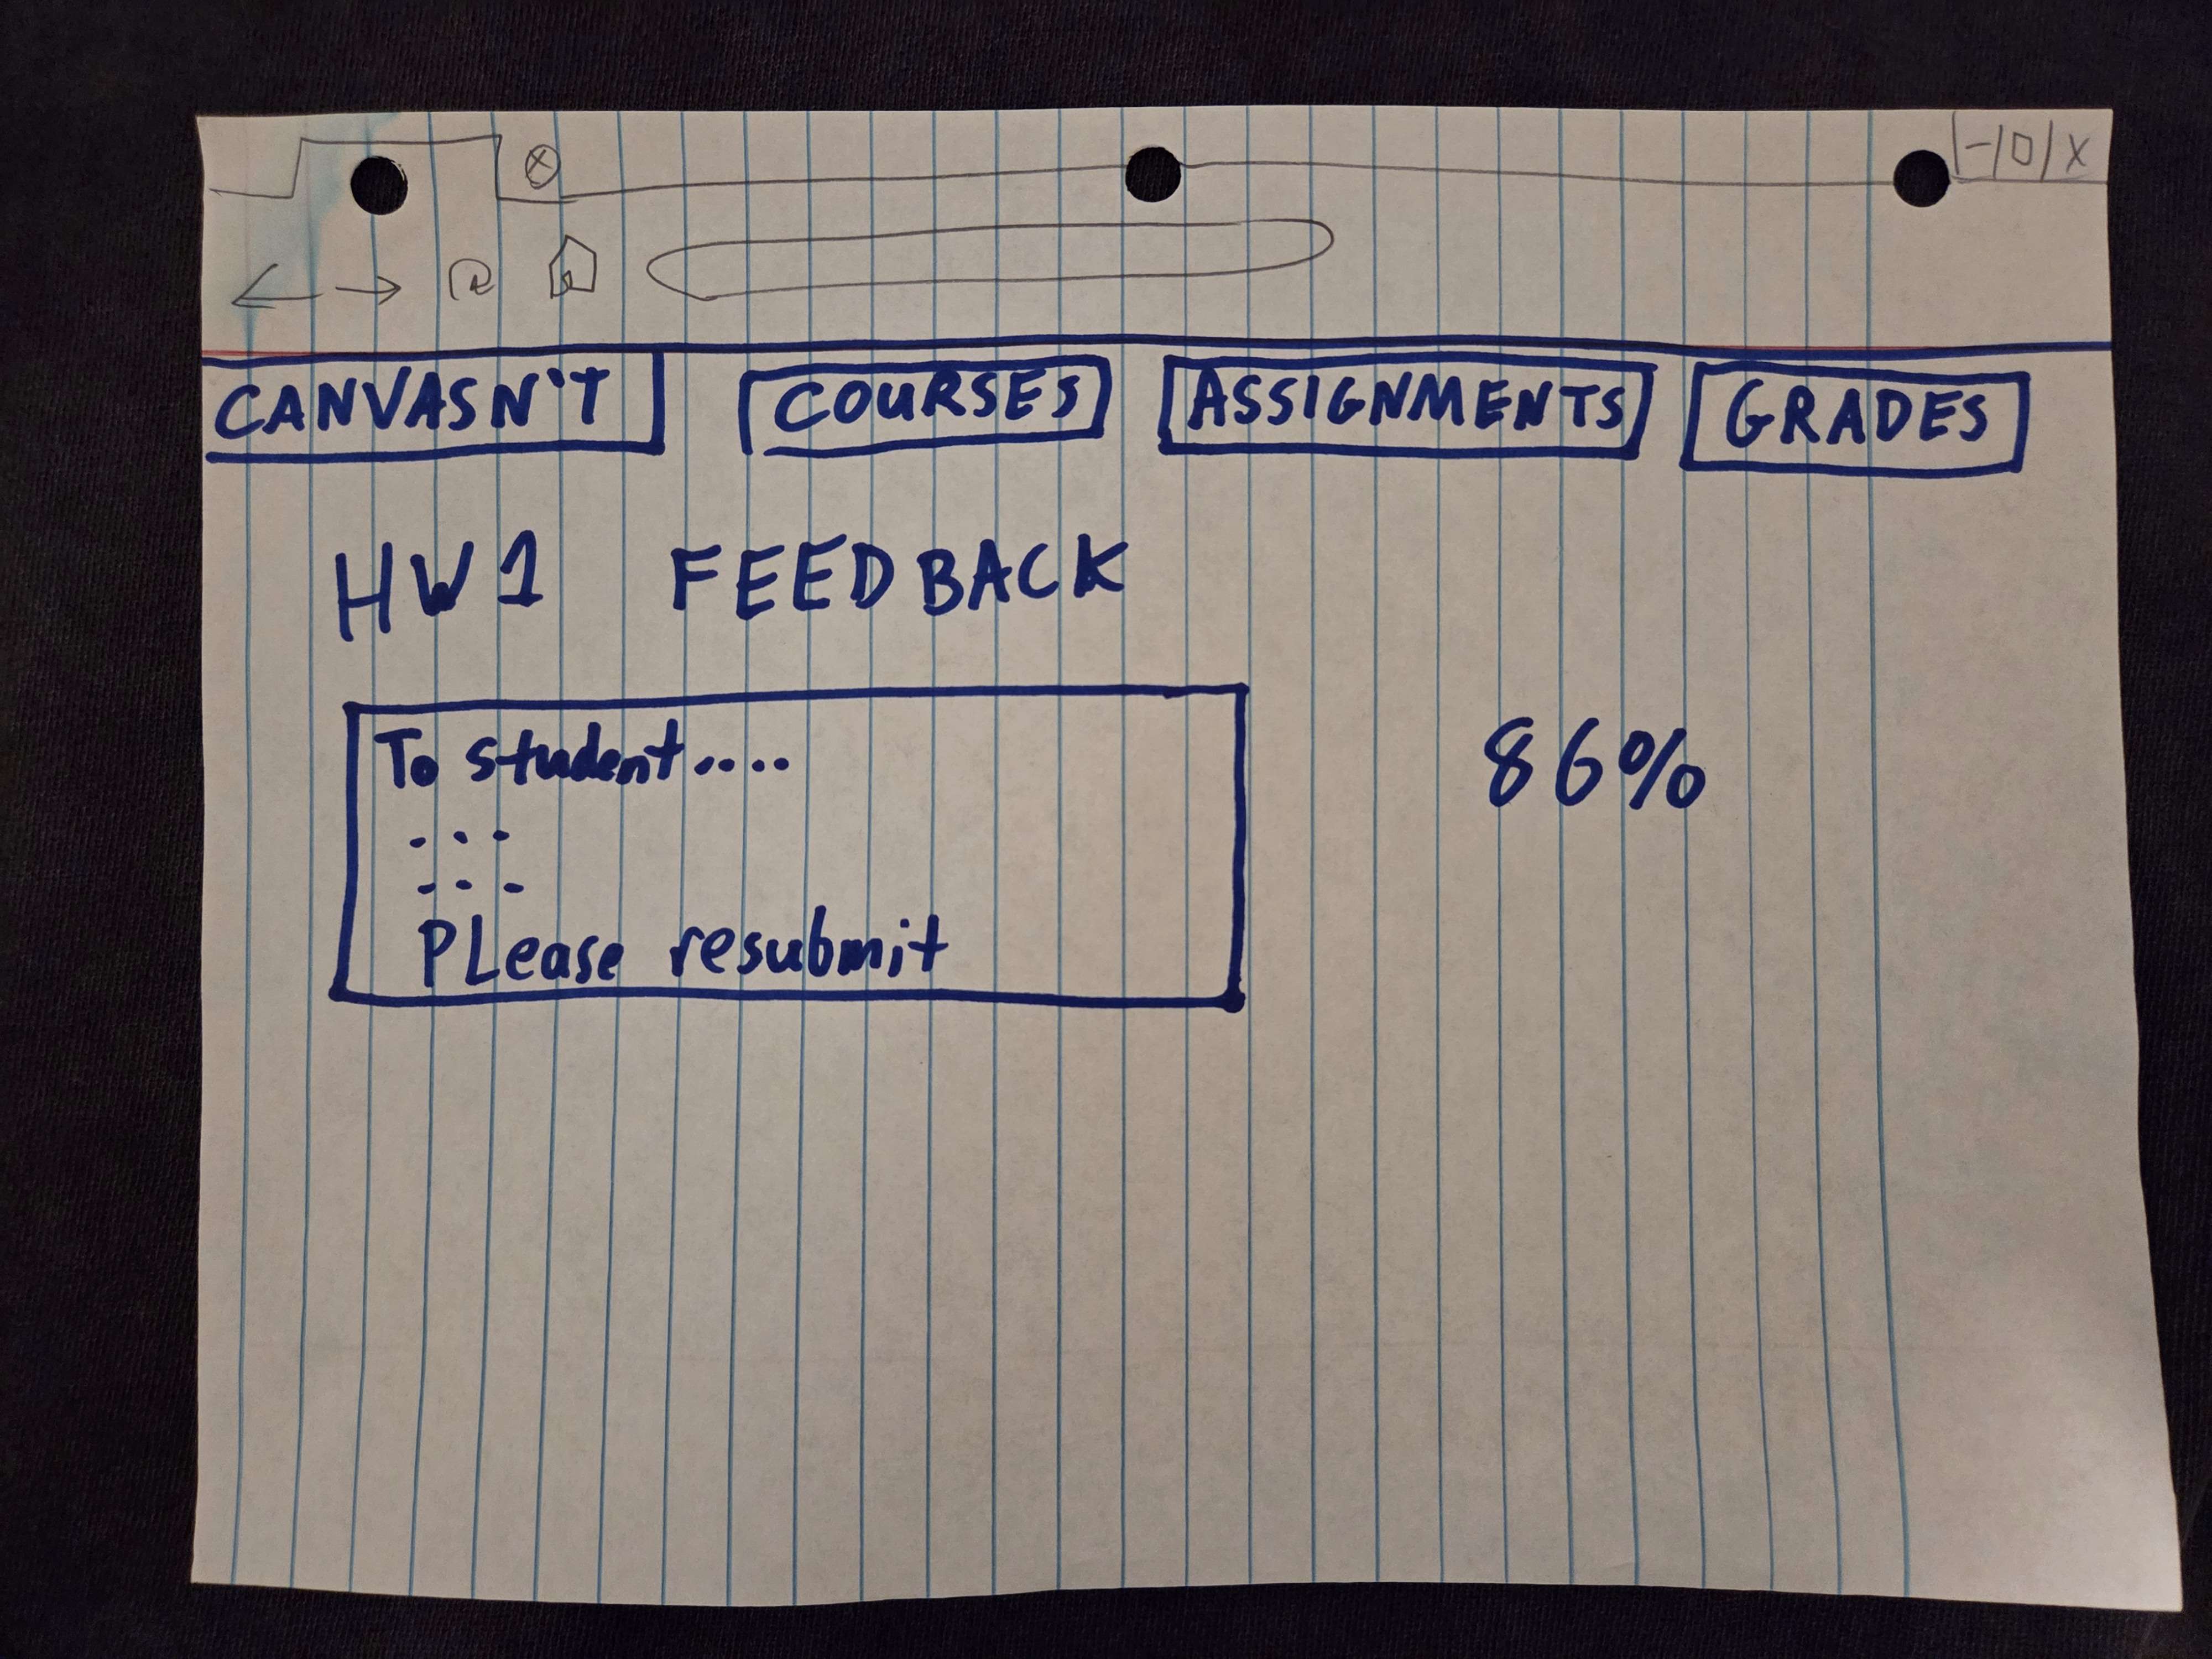 CANVASN'T COURSES ASSIGNMENTS GRADES
HW1 FEEDBACK
To student....
...
...
PLease resubmit
86%